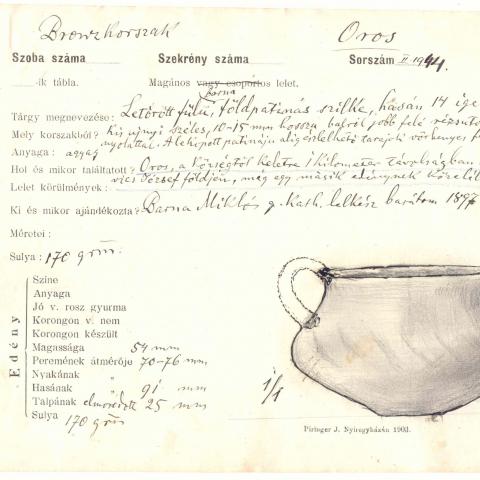 Bronzkorszak Oros
Szoba száma Szekrény száma Sorszám II 1944.
-ik tábla. Magános vagy csoportos lelet.
Barna
Tárgy megnevezése: Letörött fülű, földpatinás szilke, hasán 14 ige
Mely korszakból? Kis ujnyi széles, 10-15 mm hosszu balról jobb felé rézsutos
nyolattal. A lekopott patináju alig
Anyaga: agyag
Hol és mikor találtatott? Oros, a községtől keletre 1 kilométer távolságban
Lelet körülmények: József földjén, még egy másik edénynek
Ki és mikor ajándékozta? Barna Miklós g. kath. lelkész barátom 1897
Méretei:
Sulya: 170 grm.
Edény
Szine
Anyaga
Jó v. rosz gyurma
Korongon v. nem
Korongon készült
Magassága 54 mm
Peremének átmérője 70-76 mm
Nyakának "
Hasának " 91 mm
Talpának elmosódott 25 mm
Sulya 170 grm
1/1
Piringer J. Nyiregyházán 1903.